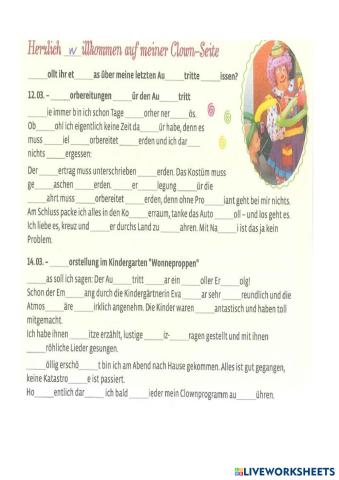 Herzlich _w_ illkommen auf meiner Clown-Seite
____ollt ihr et____as über meine letzten Au____tritte ____issen?
12.03. – ____orbereitungen ____ür den Au____tritt
____ie immer bin ich schon Tage ____orher ner____ös.
Ob____ohl ich eigentlich keine Zeit da____ür habe, denn es
muss ____iel ____orbereitet ____erden und ich dar____
nichts ____ergessen:
Der ____ertrag muss unterschrieben ____erden. Das Kostüm muss
ge____aschen ____erden. ____er____legung ____ür die
____ahrt muss ____orbereitet ____erden, denn ohne Pro____iant geht bei mir nichts.
Am Schluss packe ich alles in den Ko____erraum, tanke das Auto ____oll – und los geht es.
Ich liebe es, kreuz und ____er durchs Land zu ____ahren. Mit Na____i ist das ja kein
Problem.
14.03. – ____orstellung im Kindergarten "Wonneproppen"
____as soll ich sagen: Der Au____tritt ____ar ein ____oller Er____olg!
Schon der Em____ang durch die Kindergärtnerin Eva ____ar sehr ____reundlich und die
Atmos____äre ____irklich angenehm. Die Kinder waren ____antastisch und haben toll
mitgemacht.
Ich habe ihnen ____itze erzählt, lustige ____iz-____ragen gestellt und mit ihnen
____röhliche Lieder gesungen.
____öllig erschö____t bin ich am Abend nach Hause gekommen. Alles ist gut gegangen,
keine Katastro____e ist passiert.
Ho____entlich dar____ich bald ____ieder mein Clownprogramm au____ühren.
LIVEWORKSHEETS